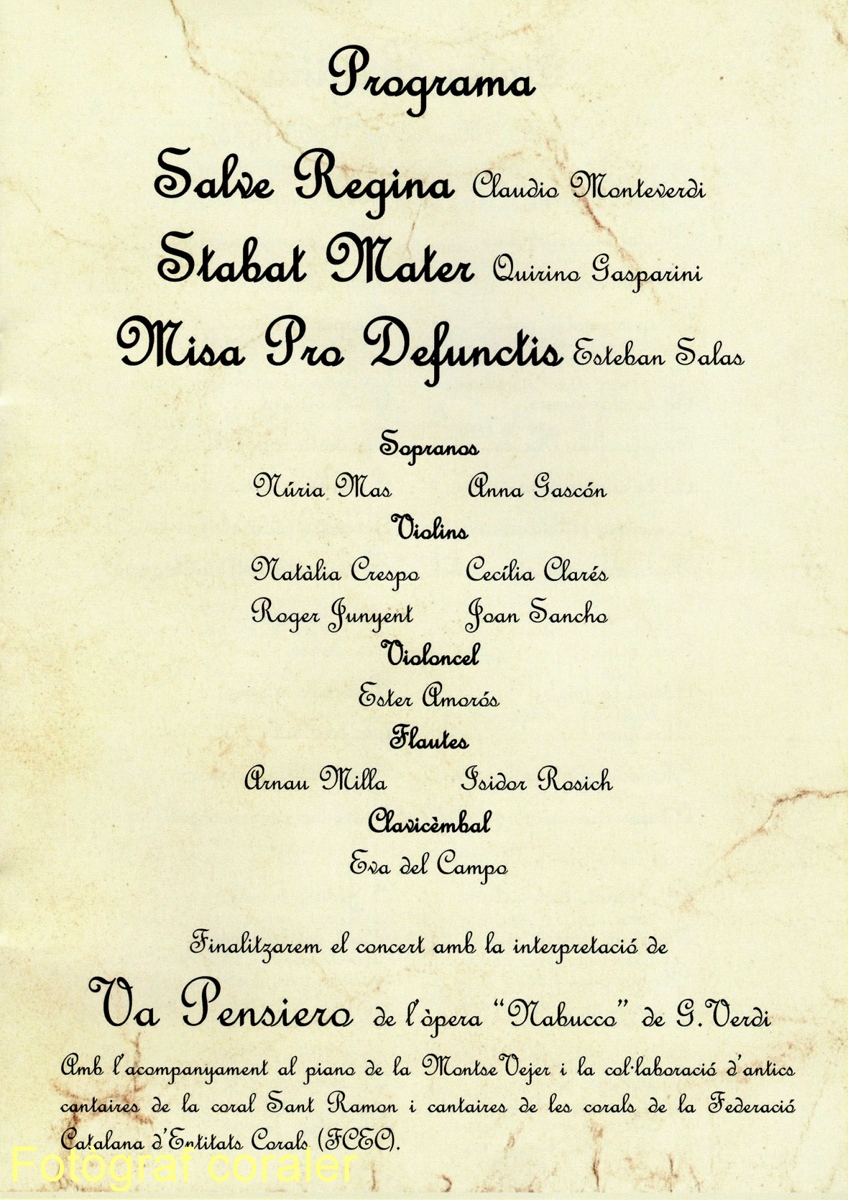 Programa
Salve Regina Claudio Monteverdi
Stabat Mater Quirino Gasparini
Misa Pro Defunctis Esteban Salas
Sopranos
Núria Mas Anna Gascón
Violins
Natàlia Crespo Cecília Clarés
Roger Junyent Joan Sancho
Violoncel
Ester Amorós
Flautes
Arnau Milla Isidor Rosich
Clavicèmbal
Eva del Campo
Finalitzarem el concert amb la interpretació de
Va Pensiero de l'òpera "Nabucco" de G.Verdi
Amb l'acompanyament al piano de la Montse Vejer i la col·laboració d'antics
cantaires de la coral Sant Ramon i cantaires de les corals de la Federació
Catalana d'Entitats Corals (FCEC).
Fotògraf coraler